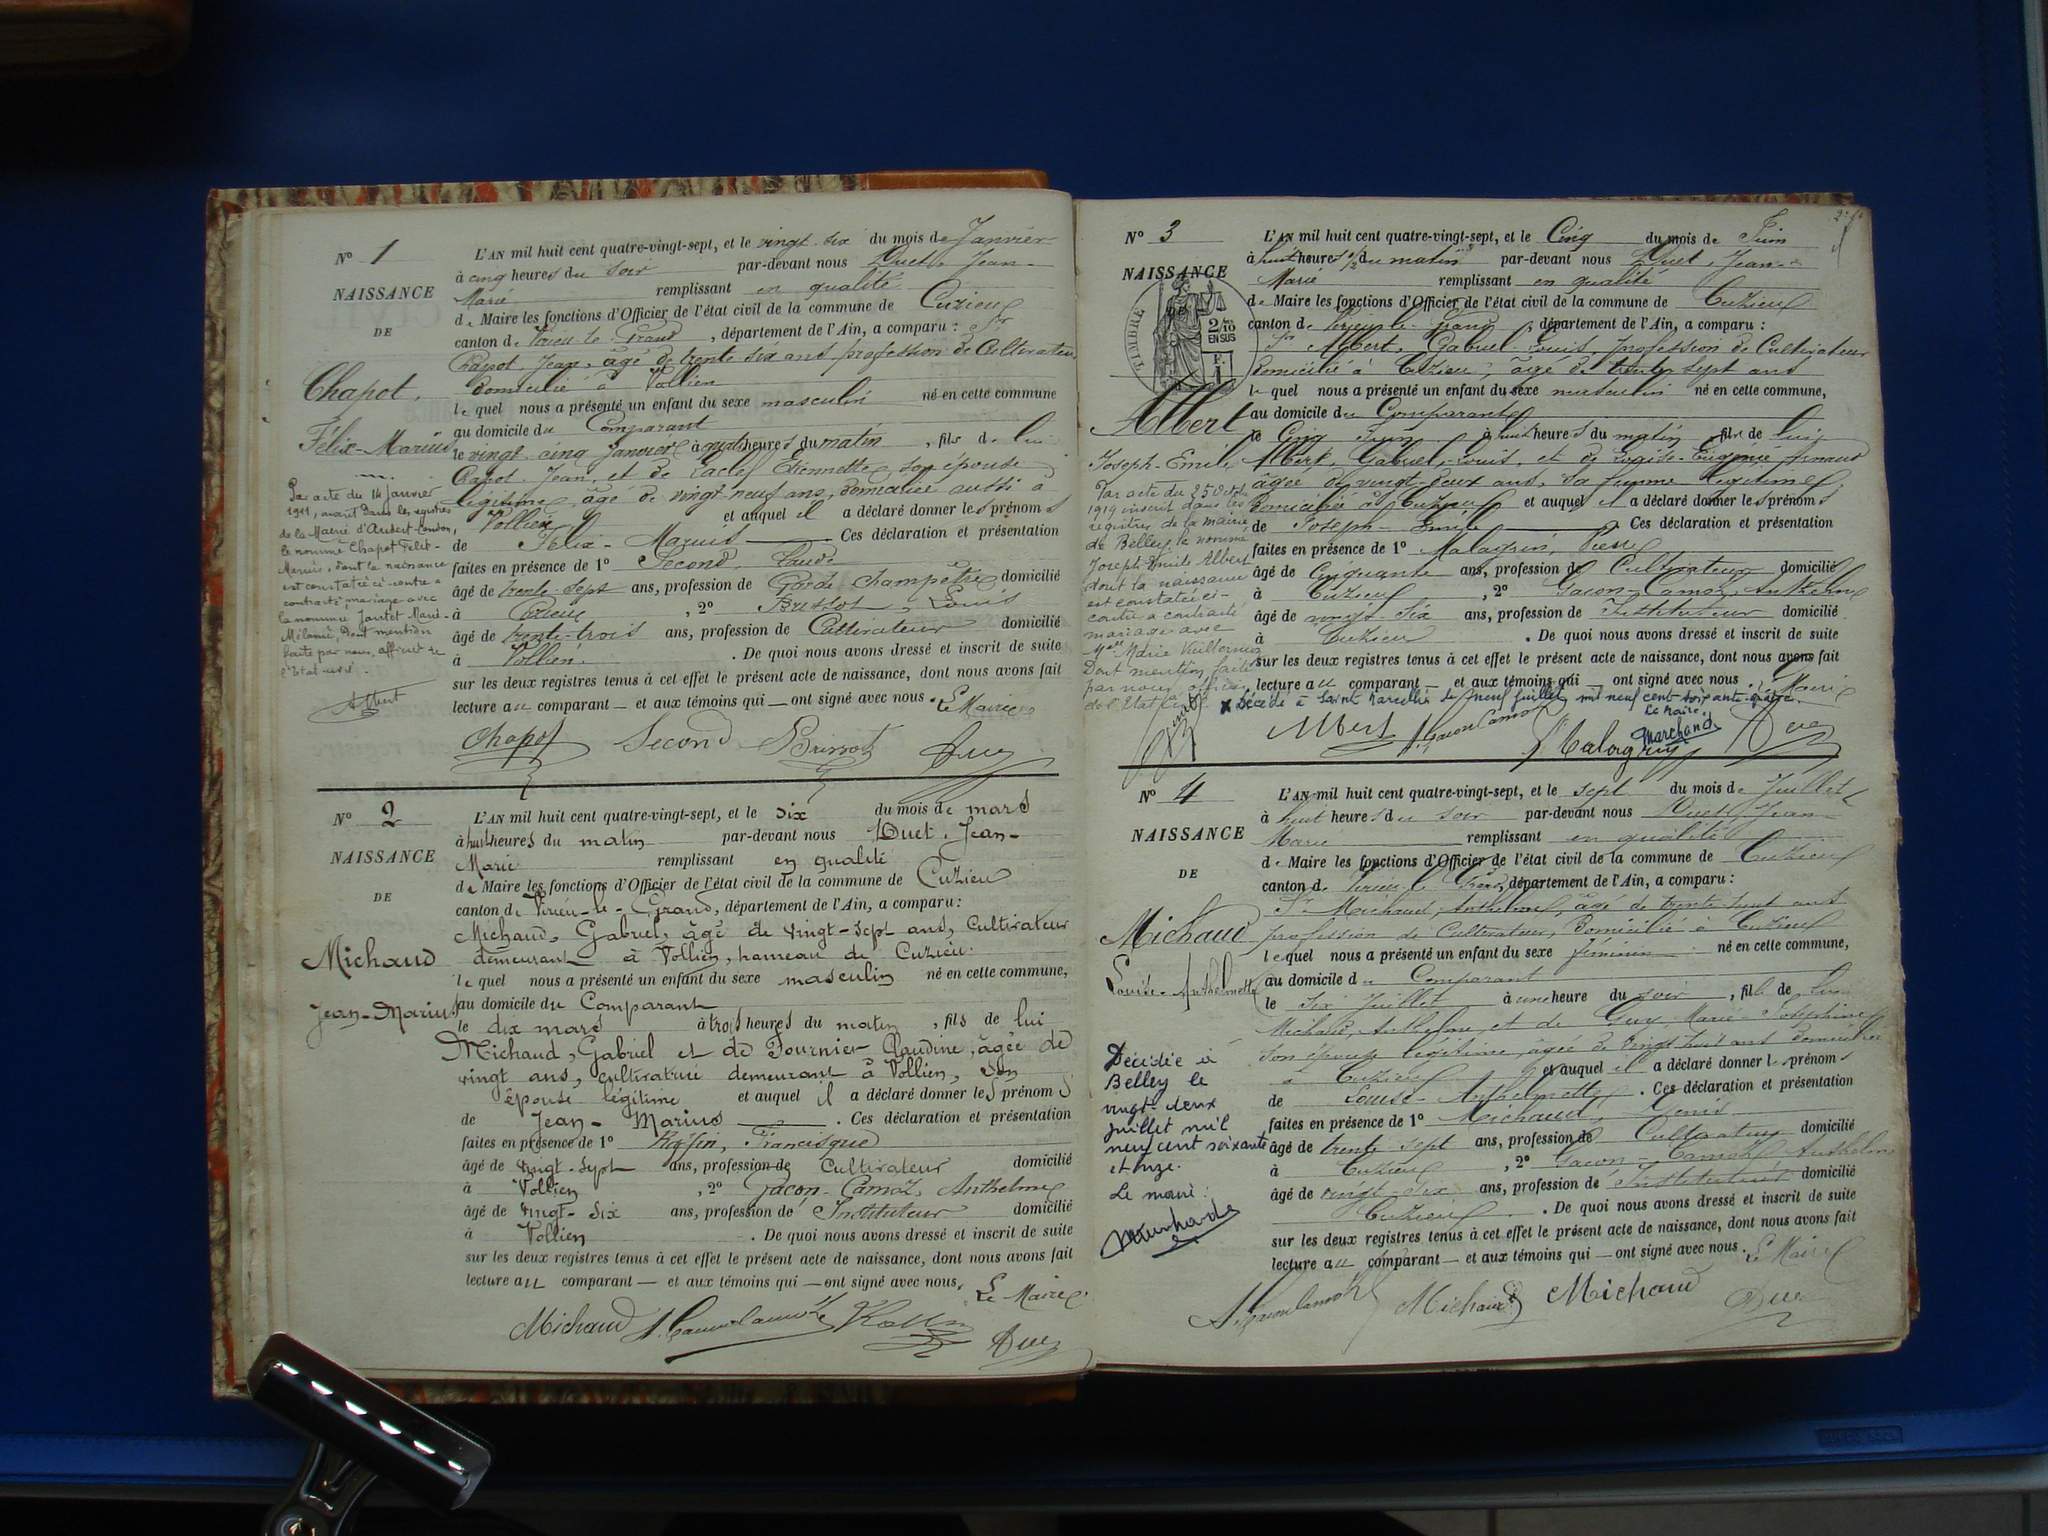 N° 1
NAISSANCE
DE
Chapot,
Félix-Marius
Par acte du 14 Janvier
1911, inscrit dans les registres
de la Mairie d'Andert-Condon,
le nommé Chapot Félix-
Marius, dont la naissance
est constatée ci-contre a
contracté mariage avec
la nommée Jantet Marie-
Mélanie, dont mention
faite par nous, officier de
l'Etat-civil.
Albert
L'AN mil huit cent quatre-vingt-sept, et le vingt-six du mois de Janvier
à cinq heures du soir par-devant nous Duet, Jean-
Marie remplissant en qualité
de Maire les fonctions d'Officier de l'état civil de la commune de Cuzieu
canton de Virieu-le-Grand, département de l'Ain, a comparu : Sr
Chapot, Jean, âgé de trente six ans, profession de Cultivateur
domicilié à Vollien
lequel nous a présenté un enfant du sexe masculin né en cette commune
au domicile du Comparant
le vingt cinq Janvier à heures du matin, fils de lui
Chapot, Jean, et de Etiennette son épouse
légitime, âgé de vingt-neuf ans, domiciliée aussi à
Vollien et auquel il a déclaré donner les prénoms
de Félix-Marius Ces déclaration et présentation
faites en présence de 1° Second, Claude
âgé de trente-sept ans, profession de Garde champêtre domicilié
à Cuzieu, 2° Brissot, Louis
âgé de trente-trois ans, profession de Cultivateur domicilié
à Vollien. De quoi nous avons dressé et inscrit de suite
sur les deux registres tenus à cet effet le présent acte de naissance, dont nous avons fait
lecture au comparant — et aux témoins qui — ont signé avec nous. Le Maire
Chapot Second Brissot Duet
N° 2
NAISSANCE
DE
Michaud
Jean-Marius
L'AN mil huit cent quatre-vingt-sept, et le six du mois de mars
à huit heures du matin par-devant nous Duet, Jean-
Marie remplissant en qualité
de Maire les fonctions d'Officier de l'état civil de la commune de Cuzieu
canton de Virieu-le-Grand, département de l'Ain, a comparu :
Michaud, Gabriel, âgé de vingt-sept ans, cultivateur
demeurant à Vollien, hameau de Cuzieu.
lequel nous a présenté un enfant du sexe masculin né en cette commune,
au domicile du Comparant
le dix mars à trois heures du matin, fils de lui
Michaud, Gabriel et de Fournier Claudine, âgée de
vingt ans, cultivatrice demeurant à Vollien, son
épouse légitime et auquel il a déclaré donner les prénoms
de Jean-Marius. Ces déclaration et présentation
faites en présence de 1° Francisque
âgé de vingt-sept ans, profession de Cultivateur domicilié
à Vollien, 2° Gacon-Camoz, Anthelme
âgé de vingt-six ans, profession de Instituteur domicilié
à Vollien. De quoi nous avons dressé et inscrit de suite
sur les deux registres tenus à cet effet le présent acte de naissance, dont nous avons fait
lecture au comparant — et aux témoins qui — ont signé avec nous. Le Maire
Michaud A. Gacon Camoz Duet
N° 3
NAISSANCE
TIMBRE
2/10 EN SUS
Albert
Joseph-Emile
Par acte du 25 Octobre
1919 inscrit dans les
registres de la mairie
de Belley, le nommé
Joseph Emile Albert
dont la naissance
est constatée ci-
contre a contracté
mariage avec
Melle Marie Vuillermoz
Dont mention faite
par nous officier
de l'Etat Civil
L'AN mil huit cent quatre-vingt-sept, et le Cinq du mois de Juin
à huit heures 1/2 du matin par-devant nous Duet, Jean-
Marie remplissant en qualité
de Maire les fonctions d'Officier de l'état civil de la commune de Cuzieu
canton de Virieu-le-Grand département de l'Ain, a comparu :
Sr Albert, Gabriel-Louis, profession de Cultivateur
domicilié à Cuzieu, âgé de trente sept ans
lequel nous a présenté un enfant du sexe masculin né en cette commune,
au domicile du Comparant
le Cinq Juin à huit heures du matin, fils de lui
Albert, Gabriel-Louis, et de Eugénie
âgée de vingt-deux ans, sa femme légitime
domiciliée à Cuzieu et auquel il a déclaré donner les prénoms
de Joseph-Emile. Ces déclaration et présentation
faites en présence de 1° Malagrin, Pierre
âgé de Cinquante ans, profession de Cultivateur domicilié
à Cuzieu, 2° Gacon-Camoz, Anthelme
âgé de vingt-six ans, profession de Instituteur domicilié
à Cuzieu. De quoi nous avons dressé et inscrit de suite
sur les deux registres tenus à cet effet le présent acte de naissance, dont nous avons fait
lecture au comparant — et aux témoins qui — ont signé avec nous. Le Maire
x Décédé à Saint Marcellin le neuf Juillet mil neuf cent soixante-quatre.
Le Maire,
Marchand
Albert A. Gacon Camoz Malagrin Duet
N° 4
NAISSANCE
DE
Michaud
Louise-Anthelmette
Décédée à
Belley le
vingt-deux
juillet mil
neuf cent soixante
et onze.
Le maire:
Marchand
L'AN mil huit cent quatre-vingt-sept, et le sept du mois de Juillet
à huit heures du soir par-devant nous Duet, Jean-
Marie remplissant en qualité
de Maire les fonctions d'Officier de l'état civil de la commune de Cuzieu
canton de Virieu-le-Grand, département de l'Ain, a comparu :
Sr Michaud, Anthelme, âgé de trente-huit ans
profession de Cultivateur, domicilié à Cuzieu
lequel nous a présenté un enfant du sexe féminin né en cette commune,
au domicile du Comparant
le six Juillet à une heure du soir, fille de lui
Michaud, Anthelme, et de Guy, Marie-Joséphine
son épouse légitime, âgée de vingt huit ans domiciliée
à Cuzieu et auquel il a déclaré donner les prénoms
de Louise-Anthelmette. Ces déclaration et présentation
faites en présence de 1° Michaud, Denis
âgé de trente-sept ans, profession de Cultivateur domicilié
à Cuzieu, 2° Gacon-Camoz Anthelme
âgé de vingt-six ans, profession de Instituteur domicilié
Cuzieu. De quoi nous avons dressé et inscrit de suite
sur les deux registres tenus à cet effet le présent acte de naissance, dont nous avons fait
lecture au comparant — et aux témoins qui — ont signé avec nous. Le Maire
A. Gacon Camoz Michaud Michaud Duet